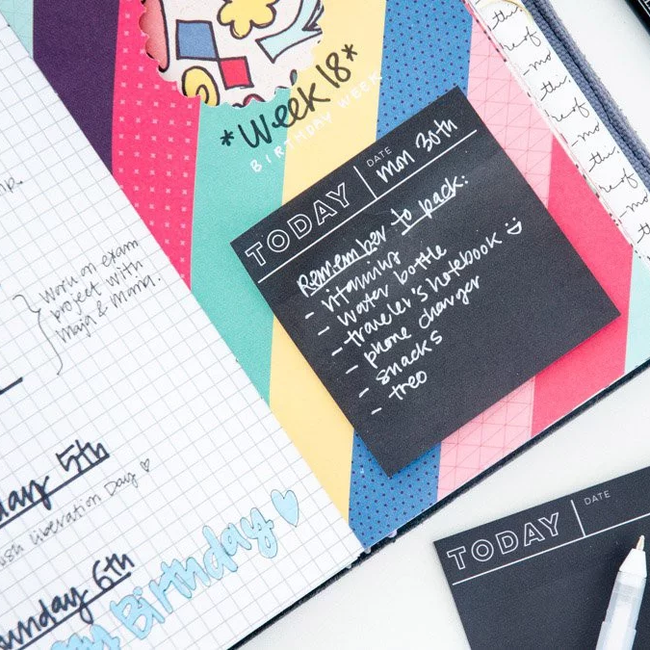 *Week 18*
BIRTHDAY WEEK
TODAY
DATE
mon 30th
Remember to pack:
- vitamins
- water bottle
- traveler's notebook
- phone charger
- snacks
- treo
Work on exam
project with
Maja & Mama.
5th
Liberation Day ♡
6th
Birthday
this.
re of
-mo
this.
re of
-mo
this.
re of
-mo
TODAY
DATE